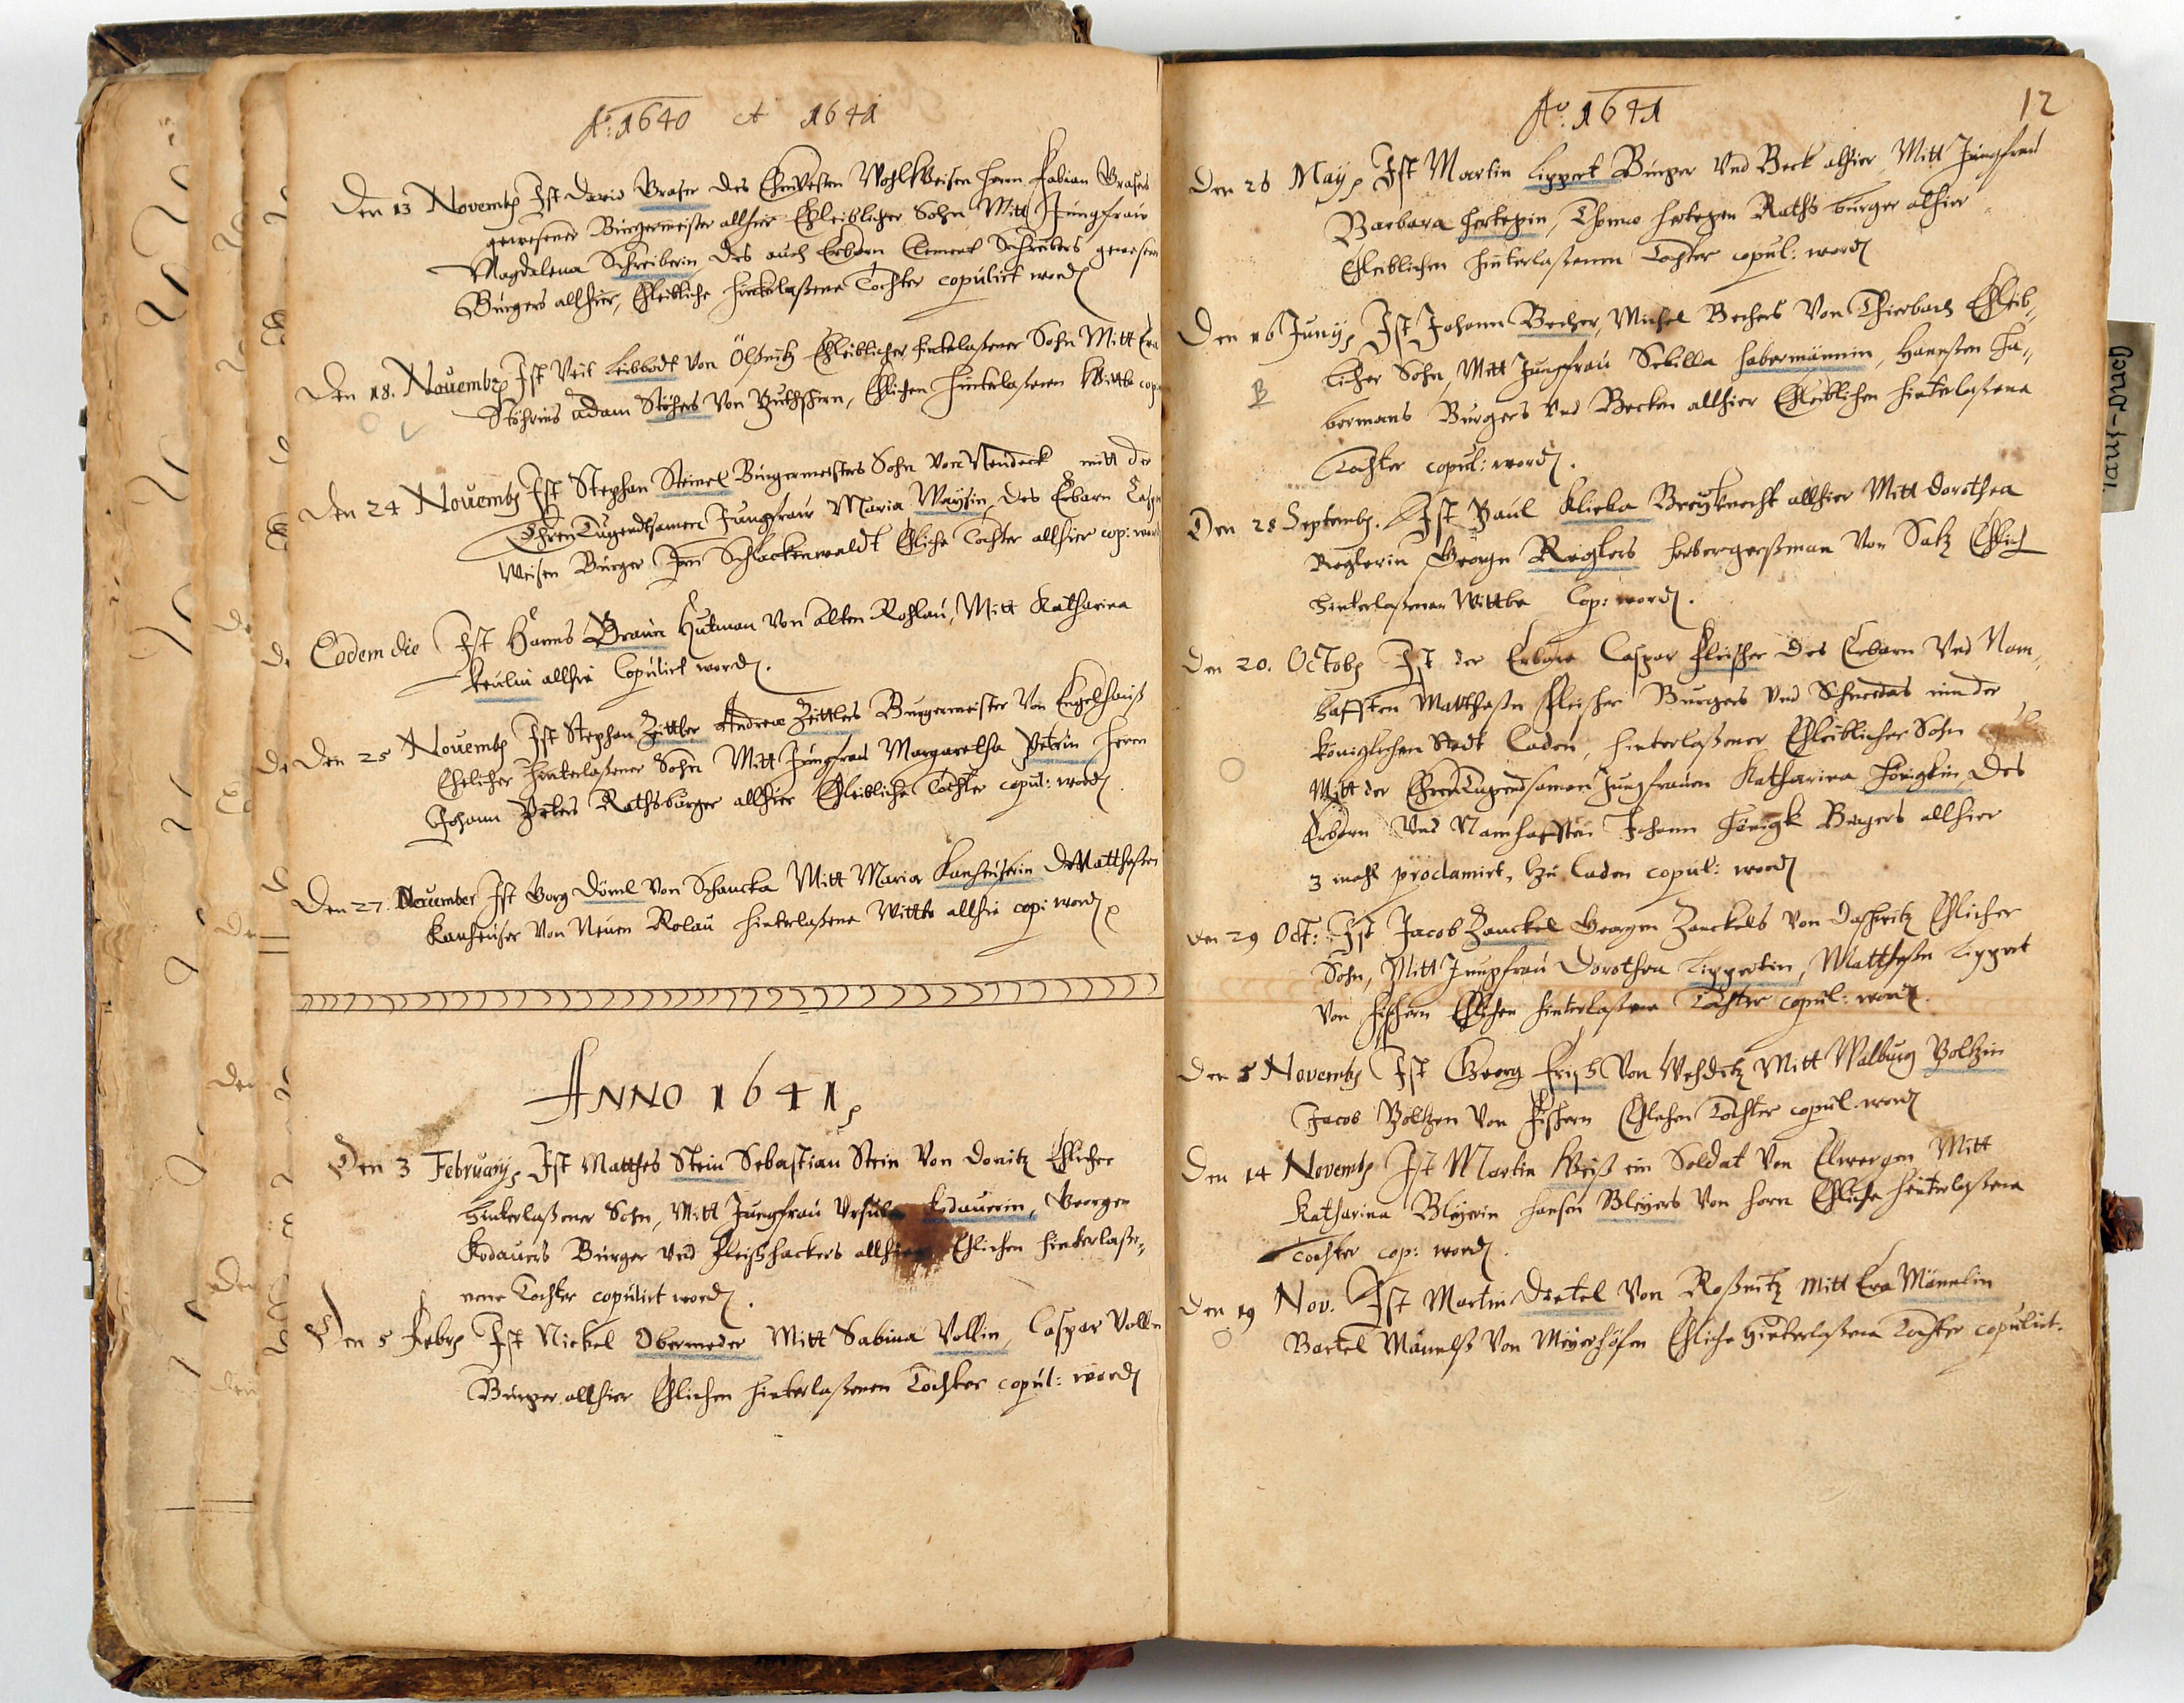 Ao: 1640 et 1641
Den 13 Novemb Ist David Graser des Ehrnvesten Wohlweisen Herrn Fabian Grasers
gewesener Burgermeister allhier Ehleiblicher Sohn, Mitt Jungfraw
Magdalena Schreiberin, des auch Erbarn Clement Schreibers gewesen
Burgers allhier, Ehleibliche hinterlaßene Tochter copulirt word
Den 18. Novemb Ist Veit von Ölßnitz Ehleiblicher hinterlaßener Sohn Mitt Eva
Störin Adam Störs von, Ehlichen hinterlaßenen Wittbe cop
Den 24 Novemb Ist Stephan Steinel Burgermeisters Sohn von Neudeck mitt der
EhrenTugendsamen Jungfraw Maria Maysin, des Erbarn
Burger Inn Schlackenwaldt Ehliche Tochter allhier cop: word
Eodem die Ist Hanns Braun Hutman von Alten Rohlau, Mitt Katharina
Keulin allhie Copulirt word.
Den 25 Novemb Ist Stephan Zeittler Andreæ Zeittlers Burgermeister von Engelhauß
Ehelicher hinterlaßener Sohn Mitt Jungfrau Margaretha Petrin Herrn
Johann Peters Rathsburger allhier Ehleibliche Tochter copul: word.
Den 27. November Ist Georg von Schancka Mitt Maria Kanheuserin Matthesen
Kanheuser von Neuen Rolau hinterlaßene Wittbe allhie cop: word
ANNO 1641
Den 3 February Ist Matthes Stein Sebastian Stein von Donitz Ehlicher
hinterlaßener Sohn, Mitt Jungfrau Ursula Kodauerin, Georgen
Kodauers Burger und Fleischhackers allhier Ehlichen hinterlaße-
nene Tochter copulirt word.
Den 5 Febr Ist Nickel Obermeder Mitt Sabina Vollin, Caspar Volln
Burger allhier Ehlichen hinterlaßenen Tochter copul: word
Ao. 1641
12
Den 26 May Ist Martin Lippert Burger und Beck alhier, Mitt Jungfrau
Barbara, Raths burger alhier
Ehleiblichen hinterlaßenen Tochter copul: word
Den 16 Juny Ist Johann Becher, Michel Bechers von Thierbach Ehleib-
licher Sohn, Mitt Jungfrau Sibilla Habermännin, Hannßen Ha-
bermans Burgers und Becken allhier Ehleiblichen hinterlaßene
Tochter copul: word.
Den 28 Septemb. Ist Paul Klieba allhier Mitt Dorothea
Reglerin Georgn Reglers Herbergerßman von Satz Ehlich
hinterlaßenen Wittbe Cop: word.
Den 20. Octob Ist der Erbare Caspar Fleischer des Erbarn und Nam-
hafften Matthesen Fleischer Burgers und in der
königlichen Stadt Caden, hinterlaßener Ehleiblicher Sohn
Mitt der EhrenTugendsamen Jungfrauen Katharina Hönigkin, des
Erbarn und Namhafften Johann Hönigk Burgers allhier
3 mahl proclamirt, zu Caden copul: word
Den 29 Oct: Ist Jacob Zanckel Georgen Zanckels von Ehlicher
Sohn, Mitt Jungfrau Dorothea Lippertin, Matthesen Lippert
von Fischern Ehlichen hinterlaßene Tochter copul: word.
Den 5 Novemb Ist Georg von Wehditz Mitt Walburg Voltzin
Jacob Voltzen von Fischern Ehlichen Tochter copul. word
Den 14 Novemb Ist Martin Weiß ein Soldat von Elbogen Mitt
Katharina Bleyerin Hansen Bleyers von Horn Ehliche hinterlaßene
Tochter cop: word.
Den 19 Nov. Ist Martin Dietel von Roßnitz mitt Eva Männlin
Bartel Männels von Meyerhöfen Ehliche hinterlaßene Tochter copulirt.